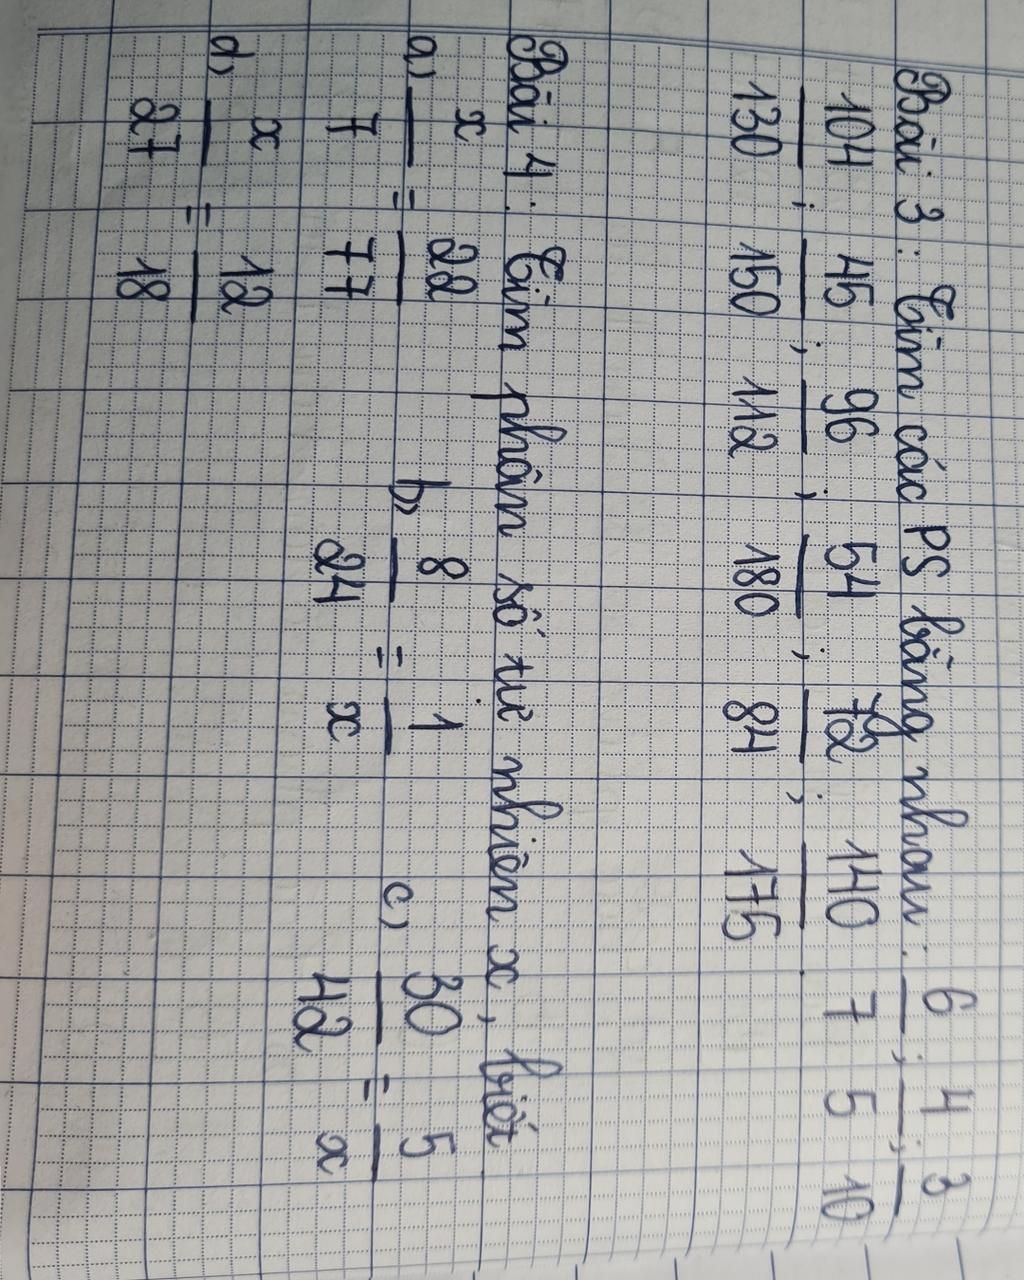 Bài 3: Tìm các PS bằng nhau: 6/7; 4/5; 3/10
104/130; 45/150; 96/112; 54/180; 72/84; 140/175.
Bài 4: Tìm phân số tự nhiên x, biết
a) x/7 = 22/77 b) 8/24 = 1/x c) 30/42 = 5/x
d) x/27 = 12/18